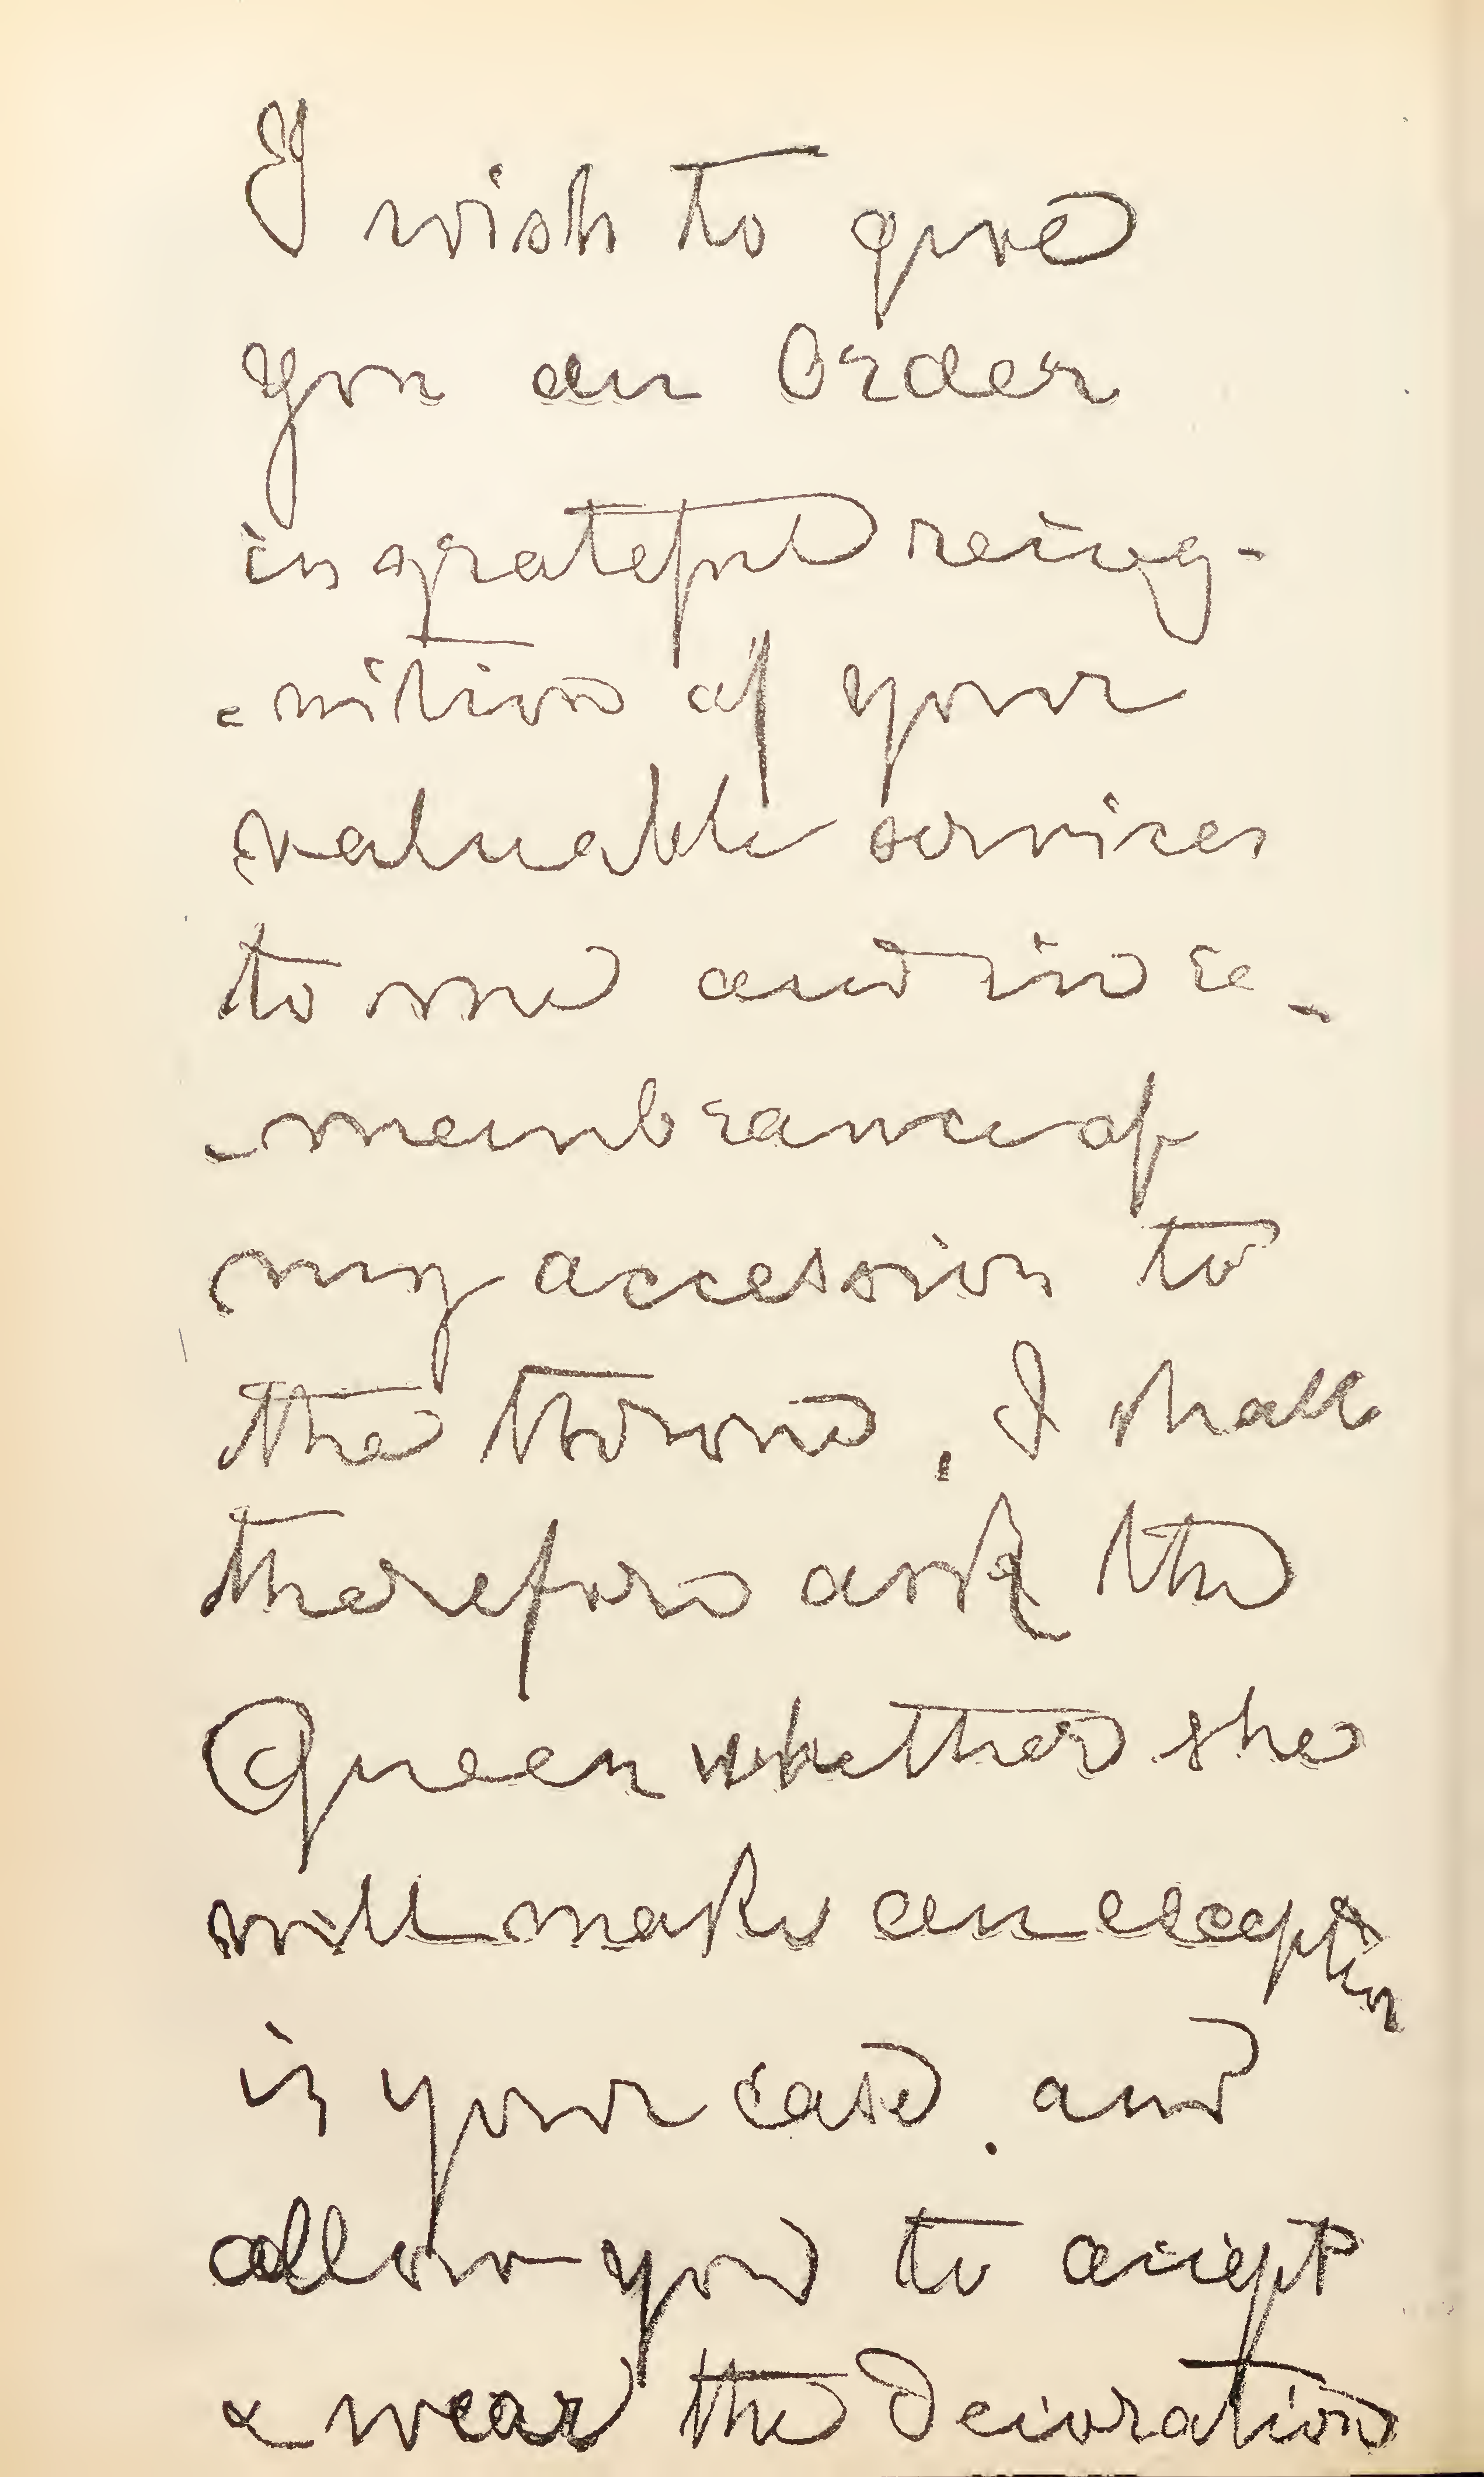 I wish to give
you an Order
in grateful recog-
-nition of your
valuable services
to me and in re-
-membrance of
my accession to
the throne, I shall
therefore ask the
Queen whether she
will make an exception
in your case. and
allow you to accept
& wear the Decoration